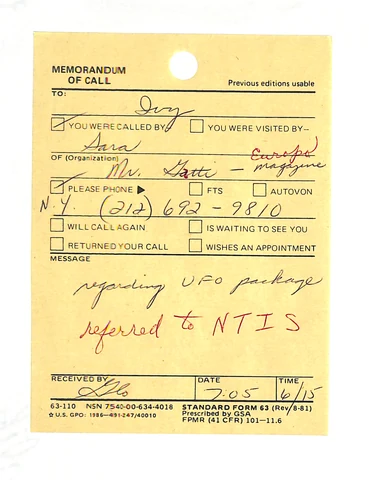 MEMORANDUM
OF CALL
Previous editions usable
TO:
Ivy
☑ YOU WERE CALLED BY- ☐ YOU WERE VISITED BY--
Sara
OF (Organization)
Mr. Gatti - Europa magazine
☑ PLEASE PHONE ▶ ☐ FTS ☐ AUTOVON
N.Y. (212) 692-9810
☐ WILL CALL AGAIN ☐ IS WAITING TO SEE YOU
☐ RETURNED YOUR CALL ☐ WISHES AN APPOINTMENT
MESSAGE
regarding UFO package
referred to NTIS
RECEIVED BY DATE TIME
Glo 7:05 6/15
63-110 NSN 7540-00-634-4018 STANDARD FORM 63 (Rev/8-81)
☆ U.S. GPO: 1986-491-247/40010 Prescribed by GSA
FPMR (41 CFR) 101-11.6